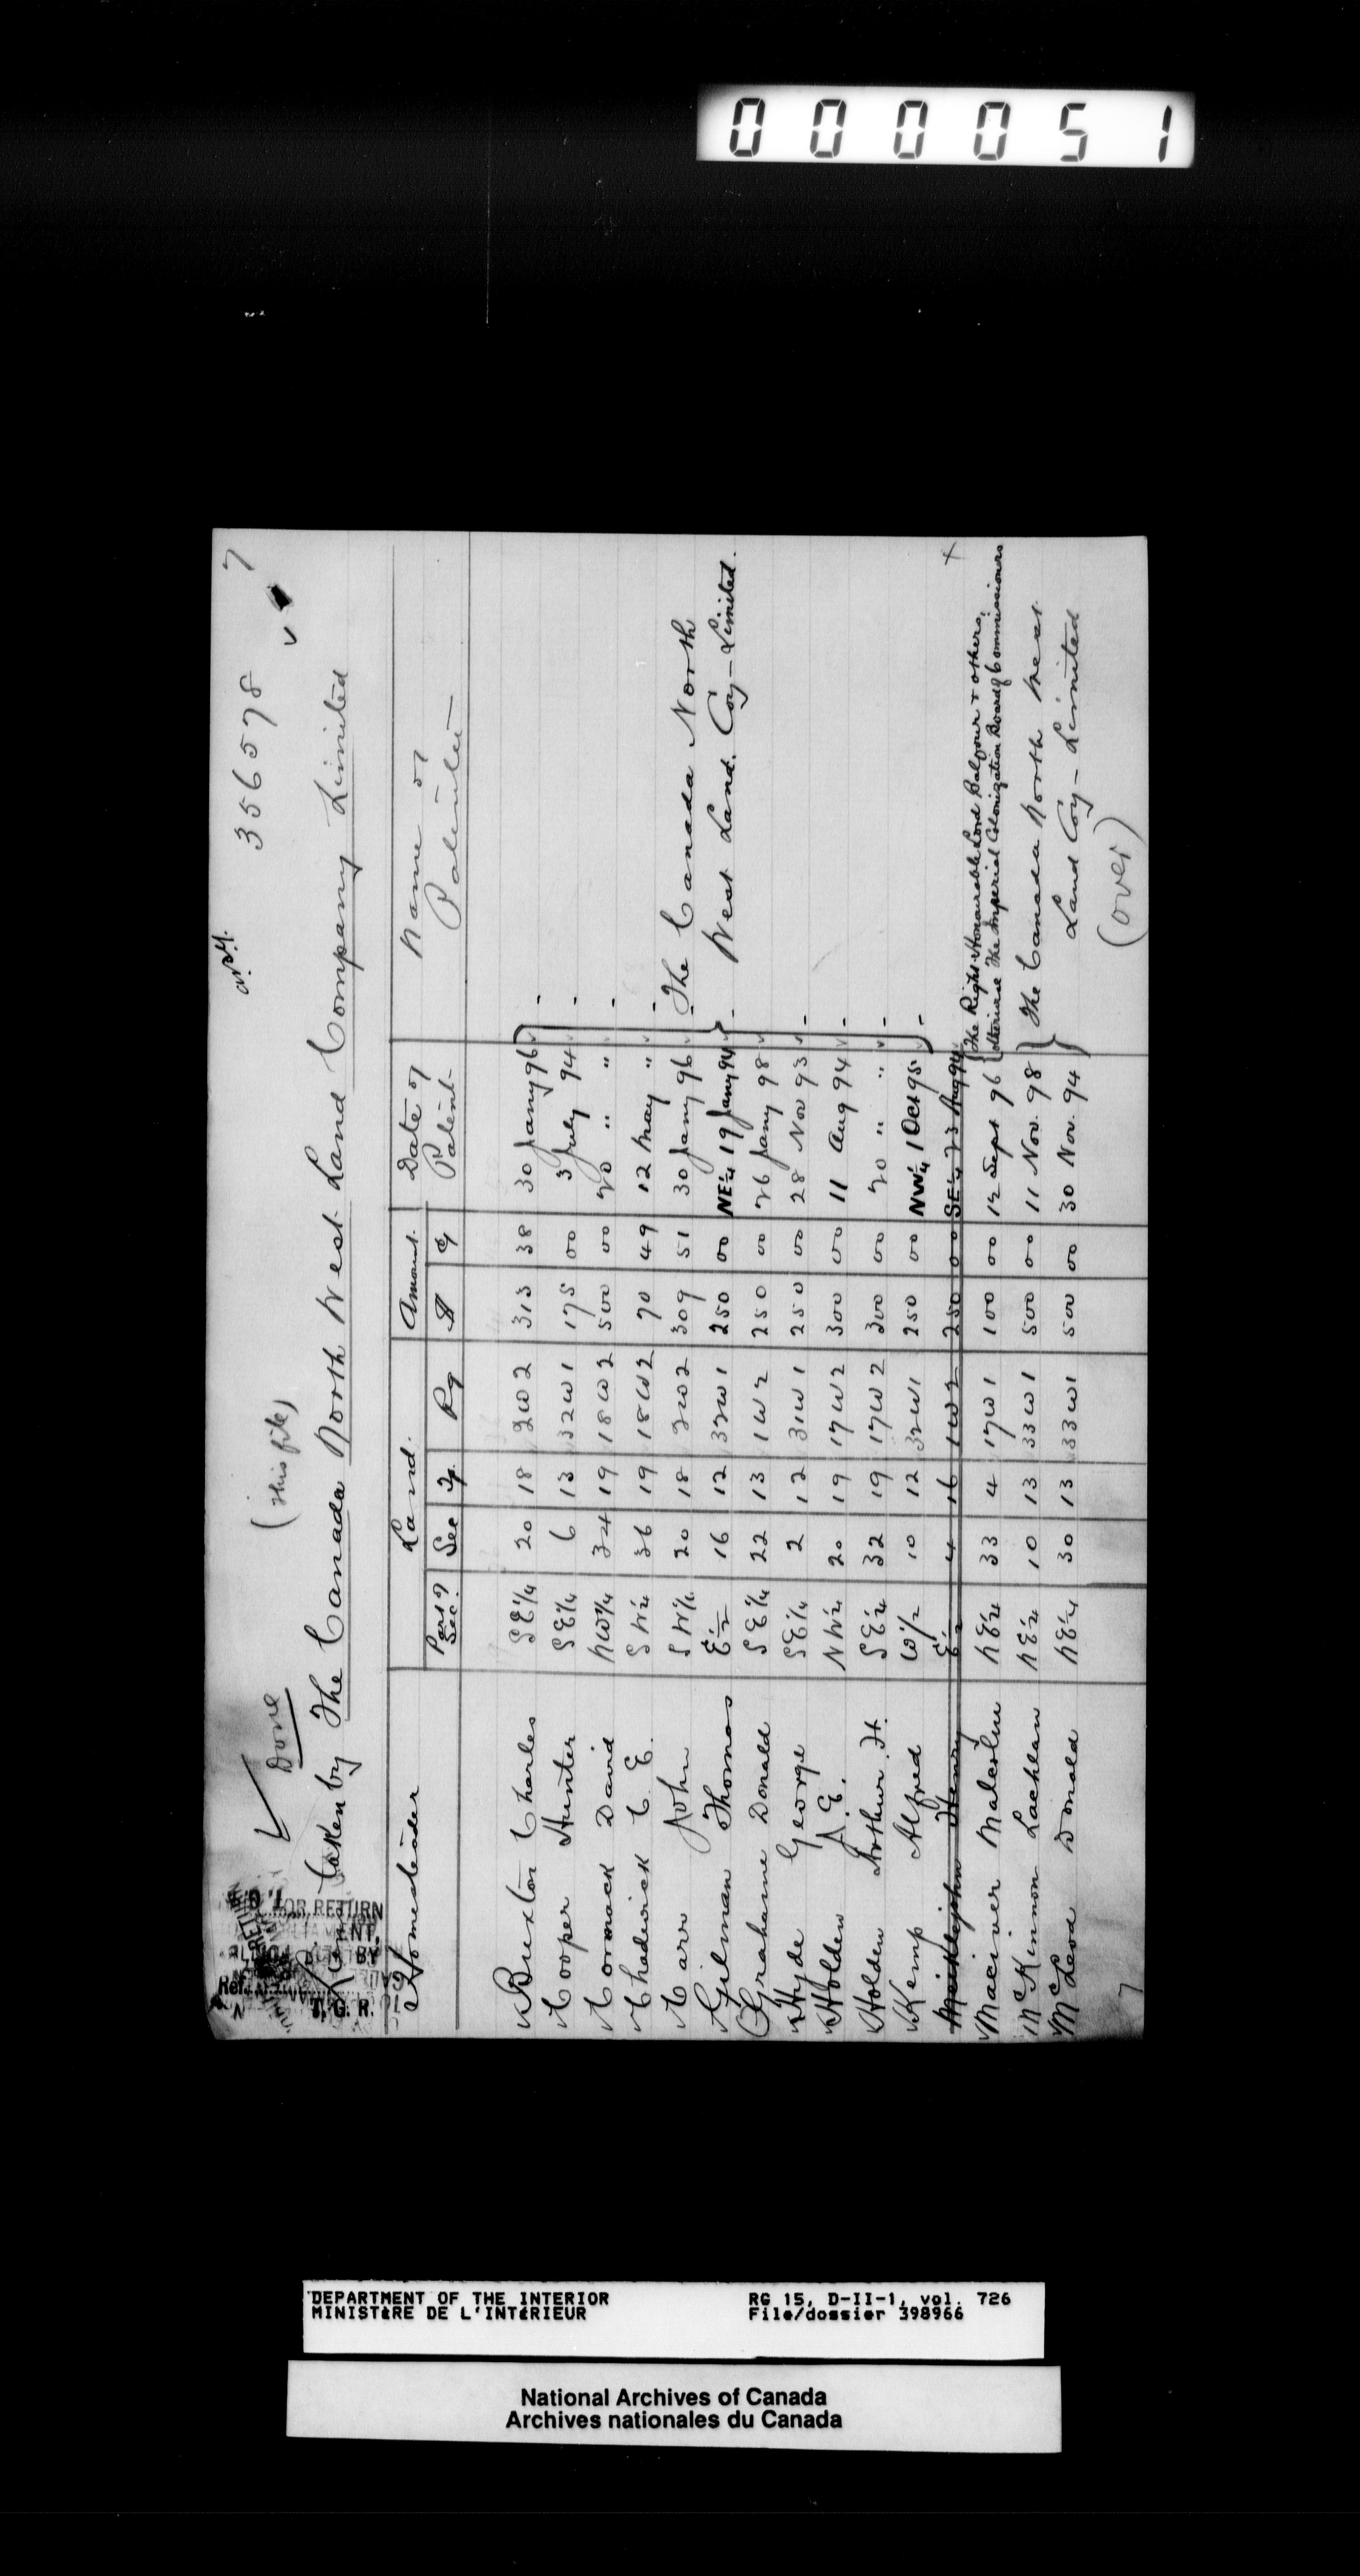 000051
7
356578
(this file)
Done
Loans taken by The Canada North West Land Company Limited
Homesteader Land. Amount. Date of Patent Name of Patentee
Part of Sec. Sec Tp. Rg $ c
Buxton Charles SE¼ 20 18 2W2 313 38 30 Jany 96
Cooper Hunter SE¼ 6 13 32W1 175 00 3 July 94
Cormack David NW¼ 34 19 18W2 500 00 20 " "
Chadwick C. E. SW¼ 36 19 18W2 70 49 12 May "
Carr John SW¼ 20 18 2W2 309 51 30 Jany 96 The Canada North
Gilman Thomas E½ 16 12 32W1 250 00 NE¼ 19 Jany 94 West Land. Coy-Limited.
Grahame Donald SE¼ 22 13 1W2 250 00 26 Jany 98
Hyde George SE¼ 2 12 31W1 250 00 28 Nov 93
Holden A. E. NW¼ 20 19 17W2 300 00 11 Aug 94
Holden Arthur H. SE¼ 32 19 17W2 300 00 20 " "
Kemp Alfred W½ 10 12 32W1 250 00 NW¼ 1 Oct 95
Meiklejohn Henry E½ 4 16 1W2 250 00 SE¼ 23 Aug 94 x
Maciver Malcolm NE¼ 33 4 17W1 100 00 12 Sept 96 The Right Honourable Lord Balfour & others,
otherwise The Imperial Colonization Board of Commissioners
McKinnon Lachlan NE¼ 10 13 33W1 500 00 11 Nov. 98 The Canada North West
McLeod Donald NE¼ 30 13 33W1 500 00 30 Nov. 94 Land Coy-Limited
(over)
7
FOR RETURN
BY
Ref.
T. G. R.
DEPARTMENT OF THE INTERIOR RG 15, D-II-1, vol. 726
MINISTÈRE DE L'INTÉRIEUR File/dossier 398966
National Archives of Canada
Archives nationales du Canada